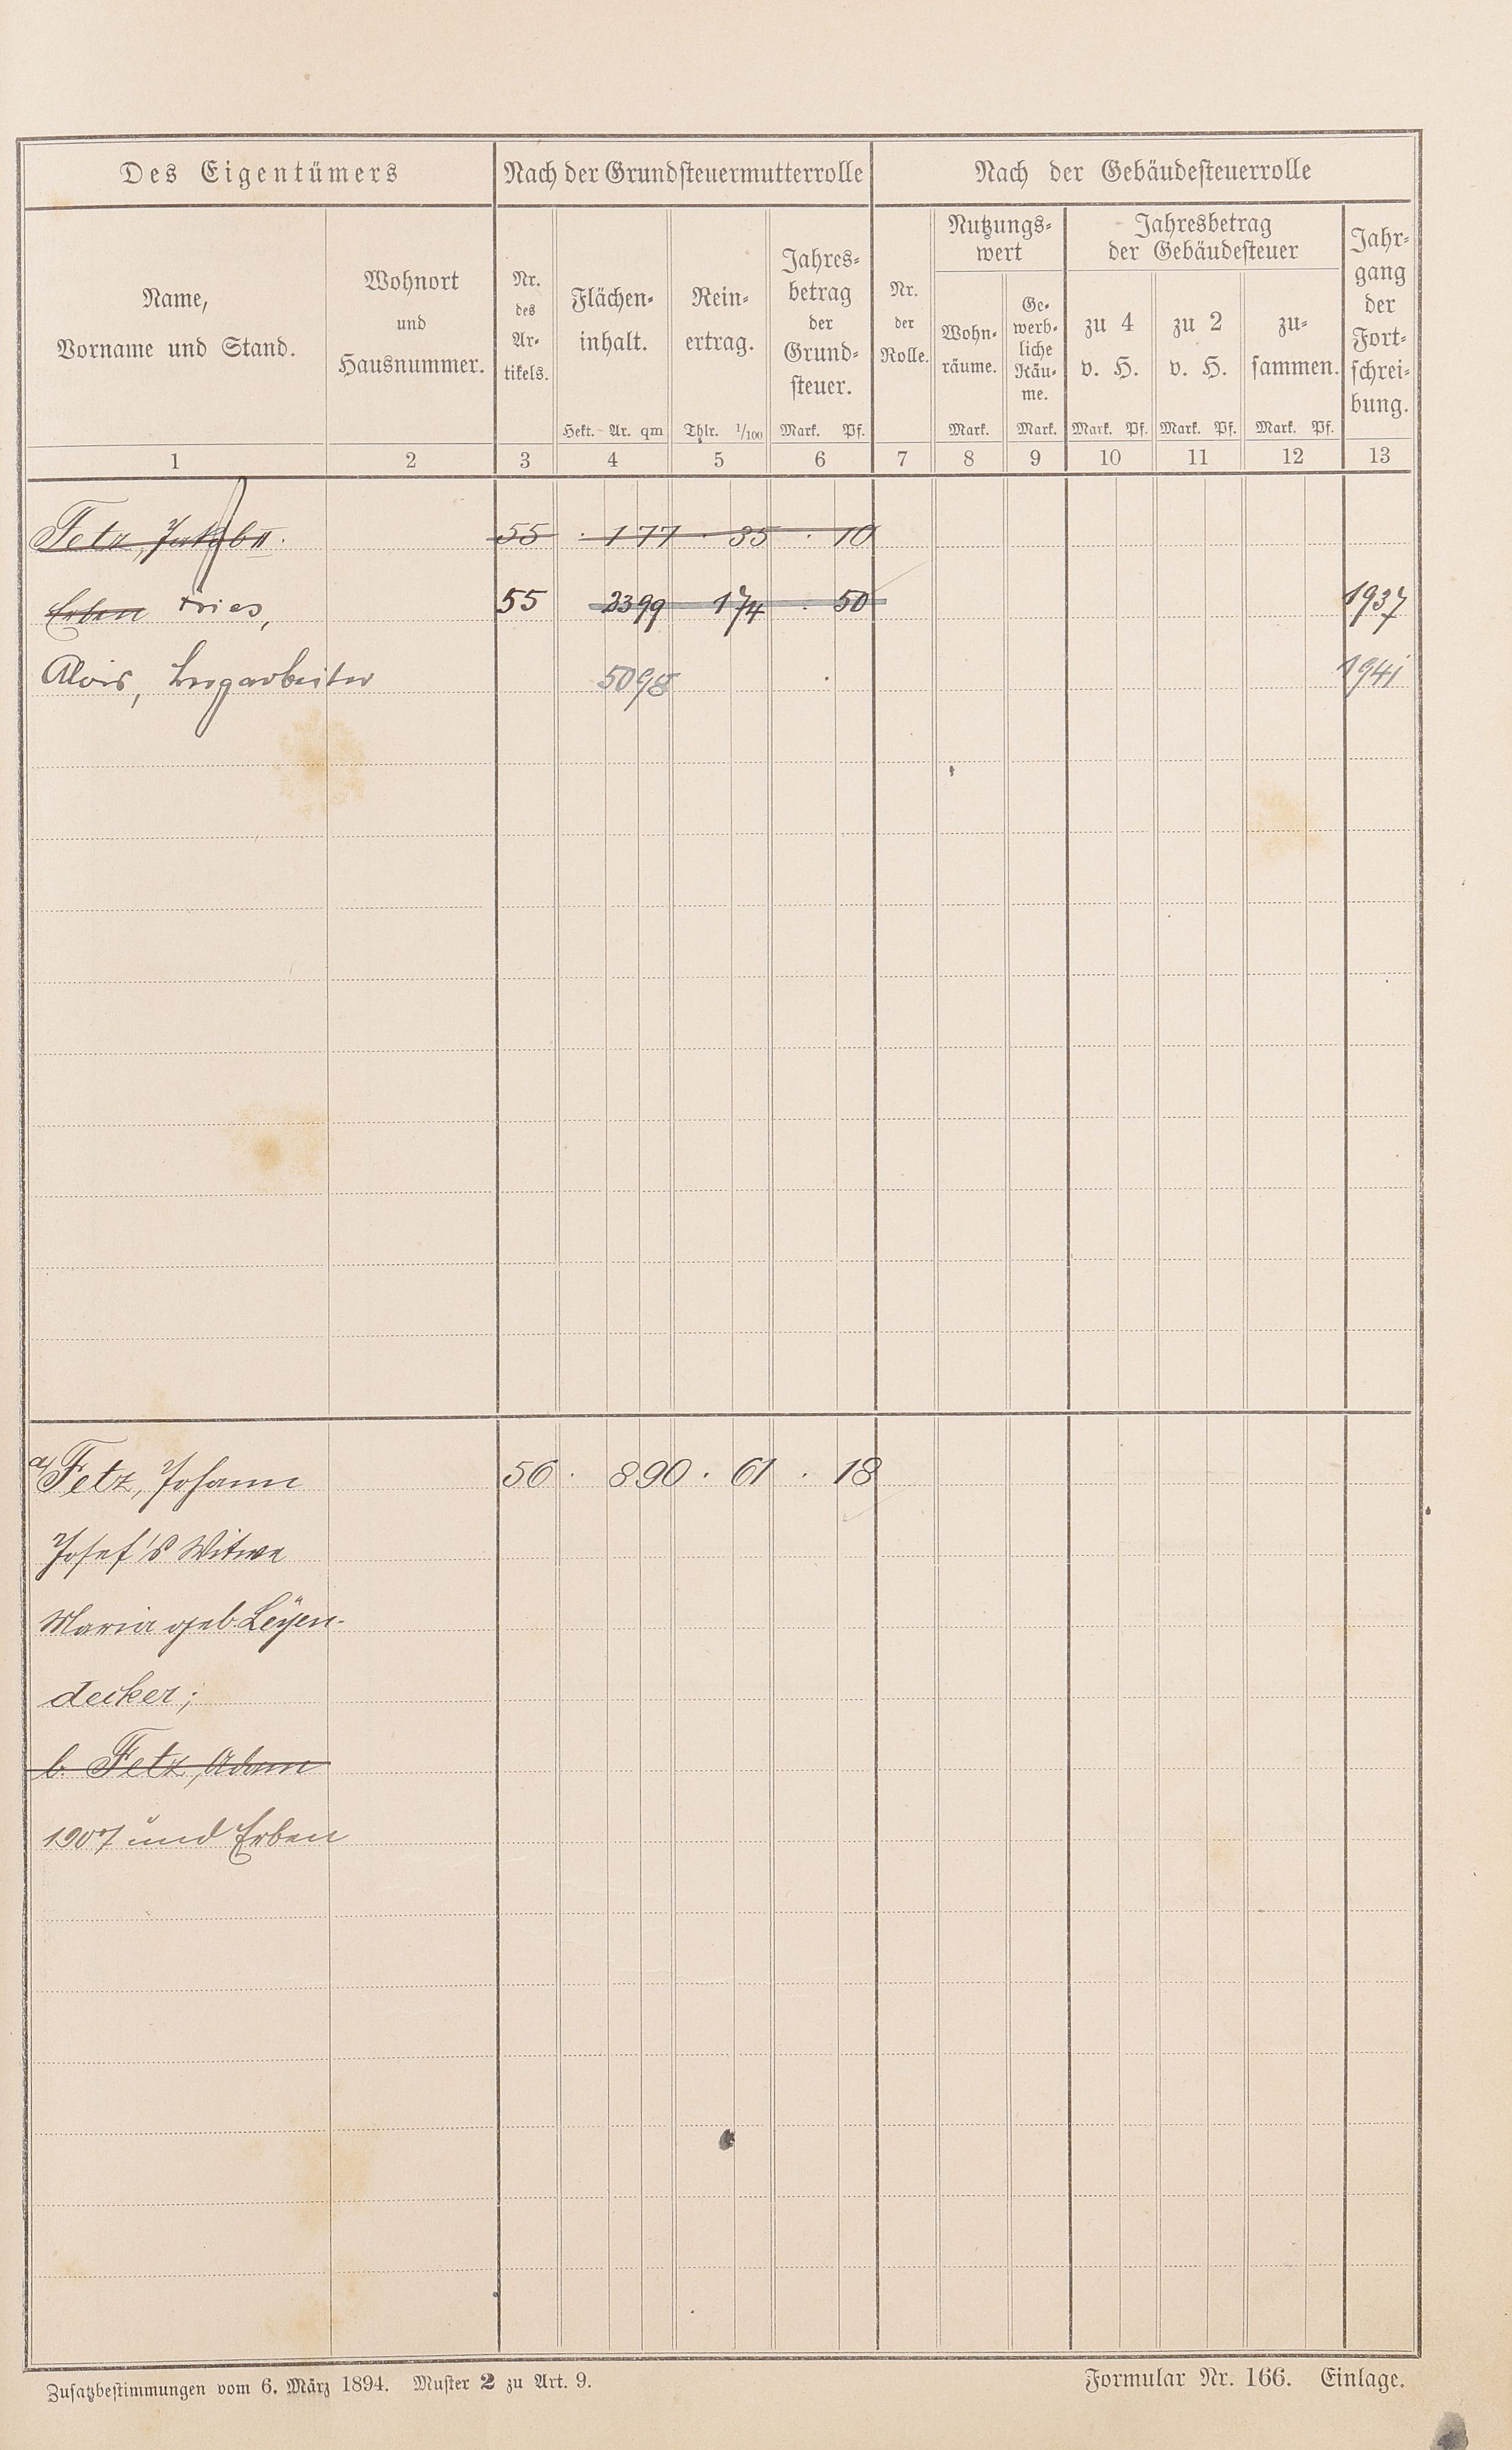 Des Eigentümers Nach der Grundsteuermutterrolle Nach der Gebäudesteuerrolle
Name, Vorname und Stand.
Wohnort und Hausnummer.
Nr. des Artikels.
Flächeninhalt. Hekt. Ar. qm
Reinertrag. Thlr. 1/100
Jahresbetrag der Grundsteuer. Mark. Pf.
Nr. der Rolle.
Nutzungswert
Wohnräume. Mark.
Gewerbliche Räume. Mark.
Jahresbetrag der Gebäudesteuer
zu 4 v. H. Mark. Pf.
zu 2 v. H. Mark. Pf.
zusammen. Mark. Pf.
Jahrgang der Fortschreibung.
1 2 3 4 5 6 7 8 9 10 11 12 13
Fetz, Jakob II. 55 · 1 77 · 35 · 10
Erben Fries, 55 23 99 1 74 · 50 1937
Alois, 50 98 · 1941
a/ Fetz, Johann 56 · 8 90 · 61 · 18
Josef's Witwe
Maria geb. Leyen-
decker;
b. Fetz, Adam
1907 und Erben
Zusatzbestimmungen vom 6. März 1894. Muster 2 zu Art. 9. Formular Nr. 166. Einlage.